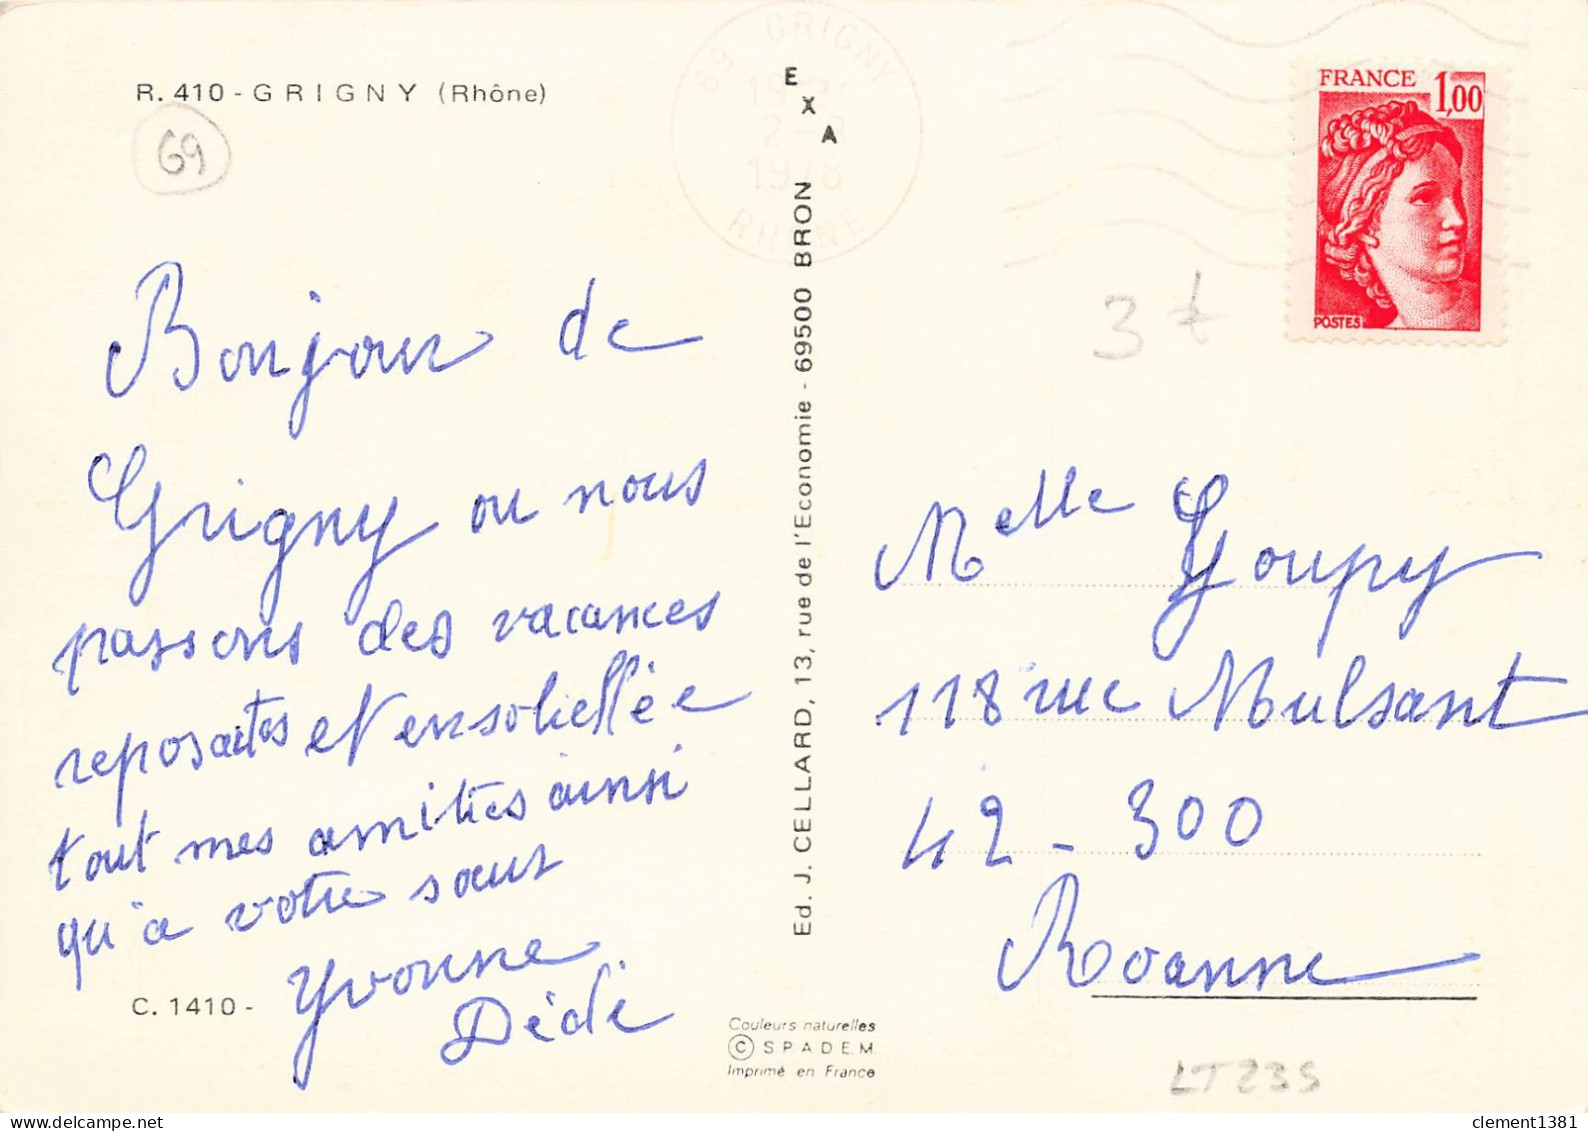 R. 410 - GRIGNY (Rhône)
69
Bonjour de
Grigny ou nous
passons des vacances
reposantes et ensoleillée
tout mes amitiés ainsi
qu'a votre sœur
Yvonne
Dédé
C. 1410 -
69 - GRIGNY
1978
RHONE
EXA
Ed. J. CELLARD, 13, rue de l'Economie - 69500 BRON
Couleurs naturelles
© SPADEM
Imprimé en France
FRANCE 1,00
POSTES
3 t
Melle Goupy
118 rue Mulsant
42 - 300
Roanne
LT23S
clement1381